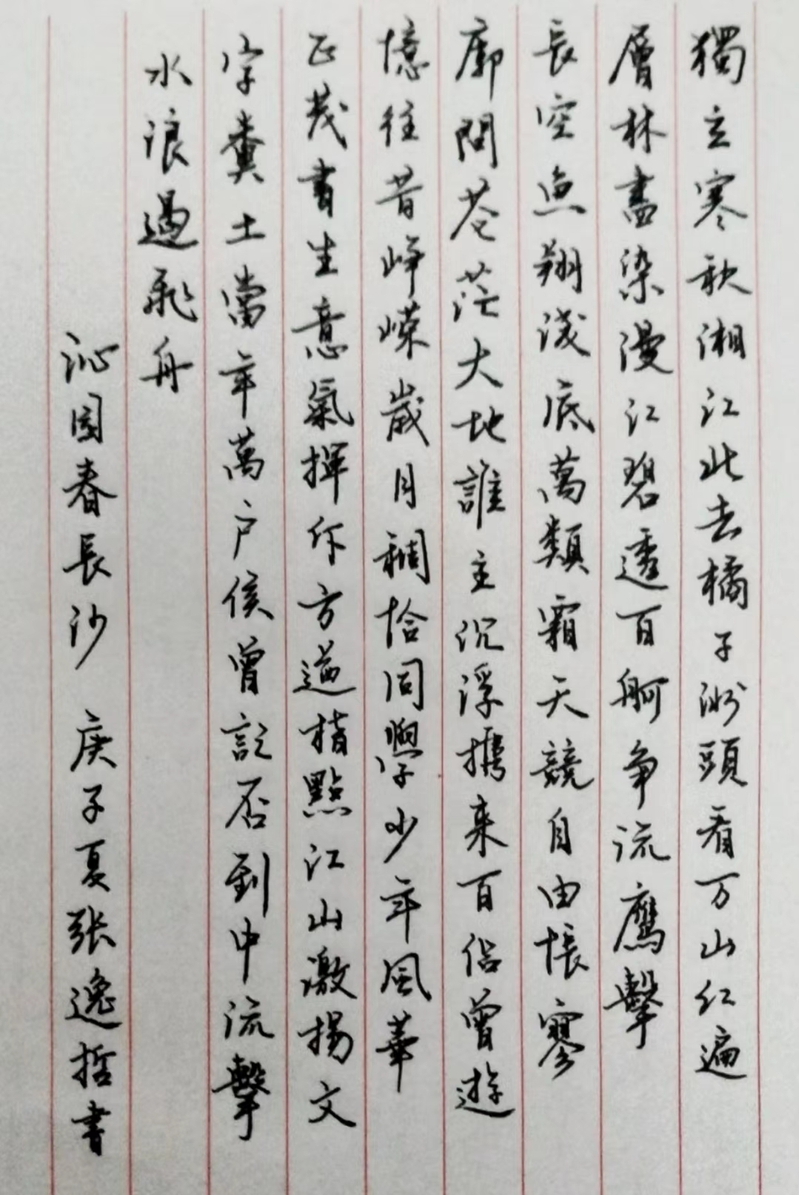 獨立寒秋湘江北去橘子洲頭看万山红遍
層林盡染漫江碧透百舸争流鷹擊
長空魚翔淺底萬類霜天競自由悵寥
廓問苍茫大地誰主沉浮攜来百侣曾遊
憶往昔峥嵘嵗月稠恰同學少年風華
正茂書生意氣揮斥方遒指點江山激揚文
字糞土當年萬户侯曾記否到中流擊
水浪遏飛舟
沁園春長沙 庚子夏張逸哲書